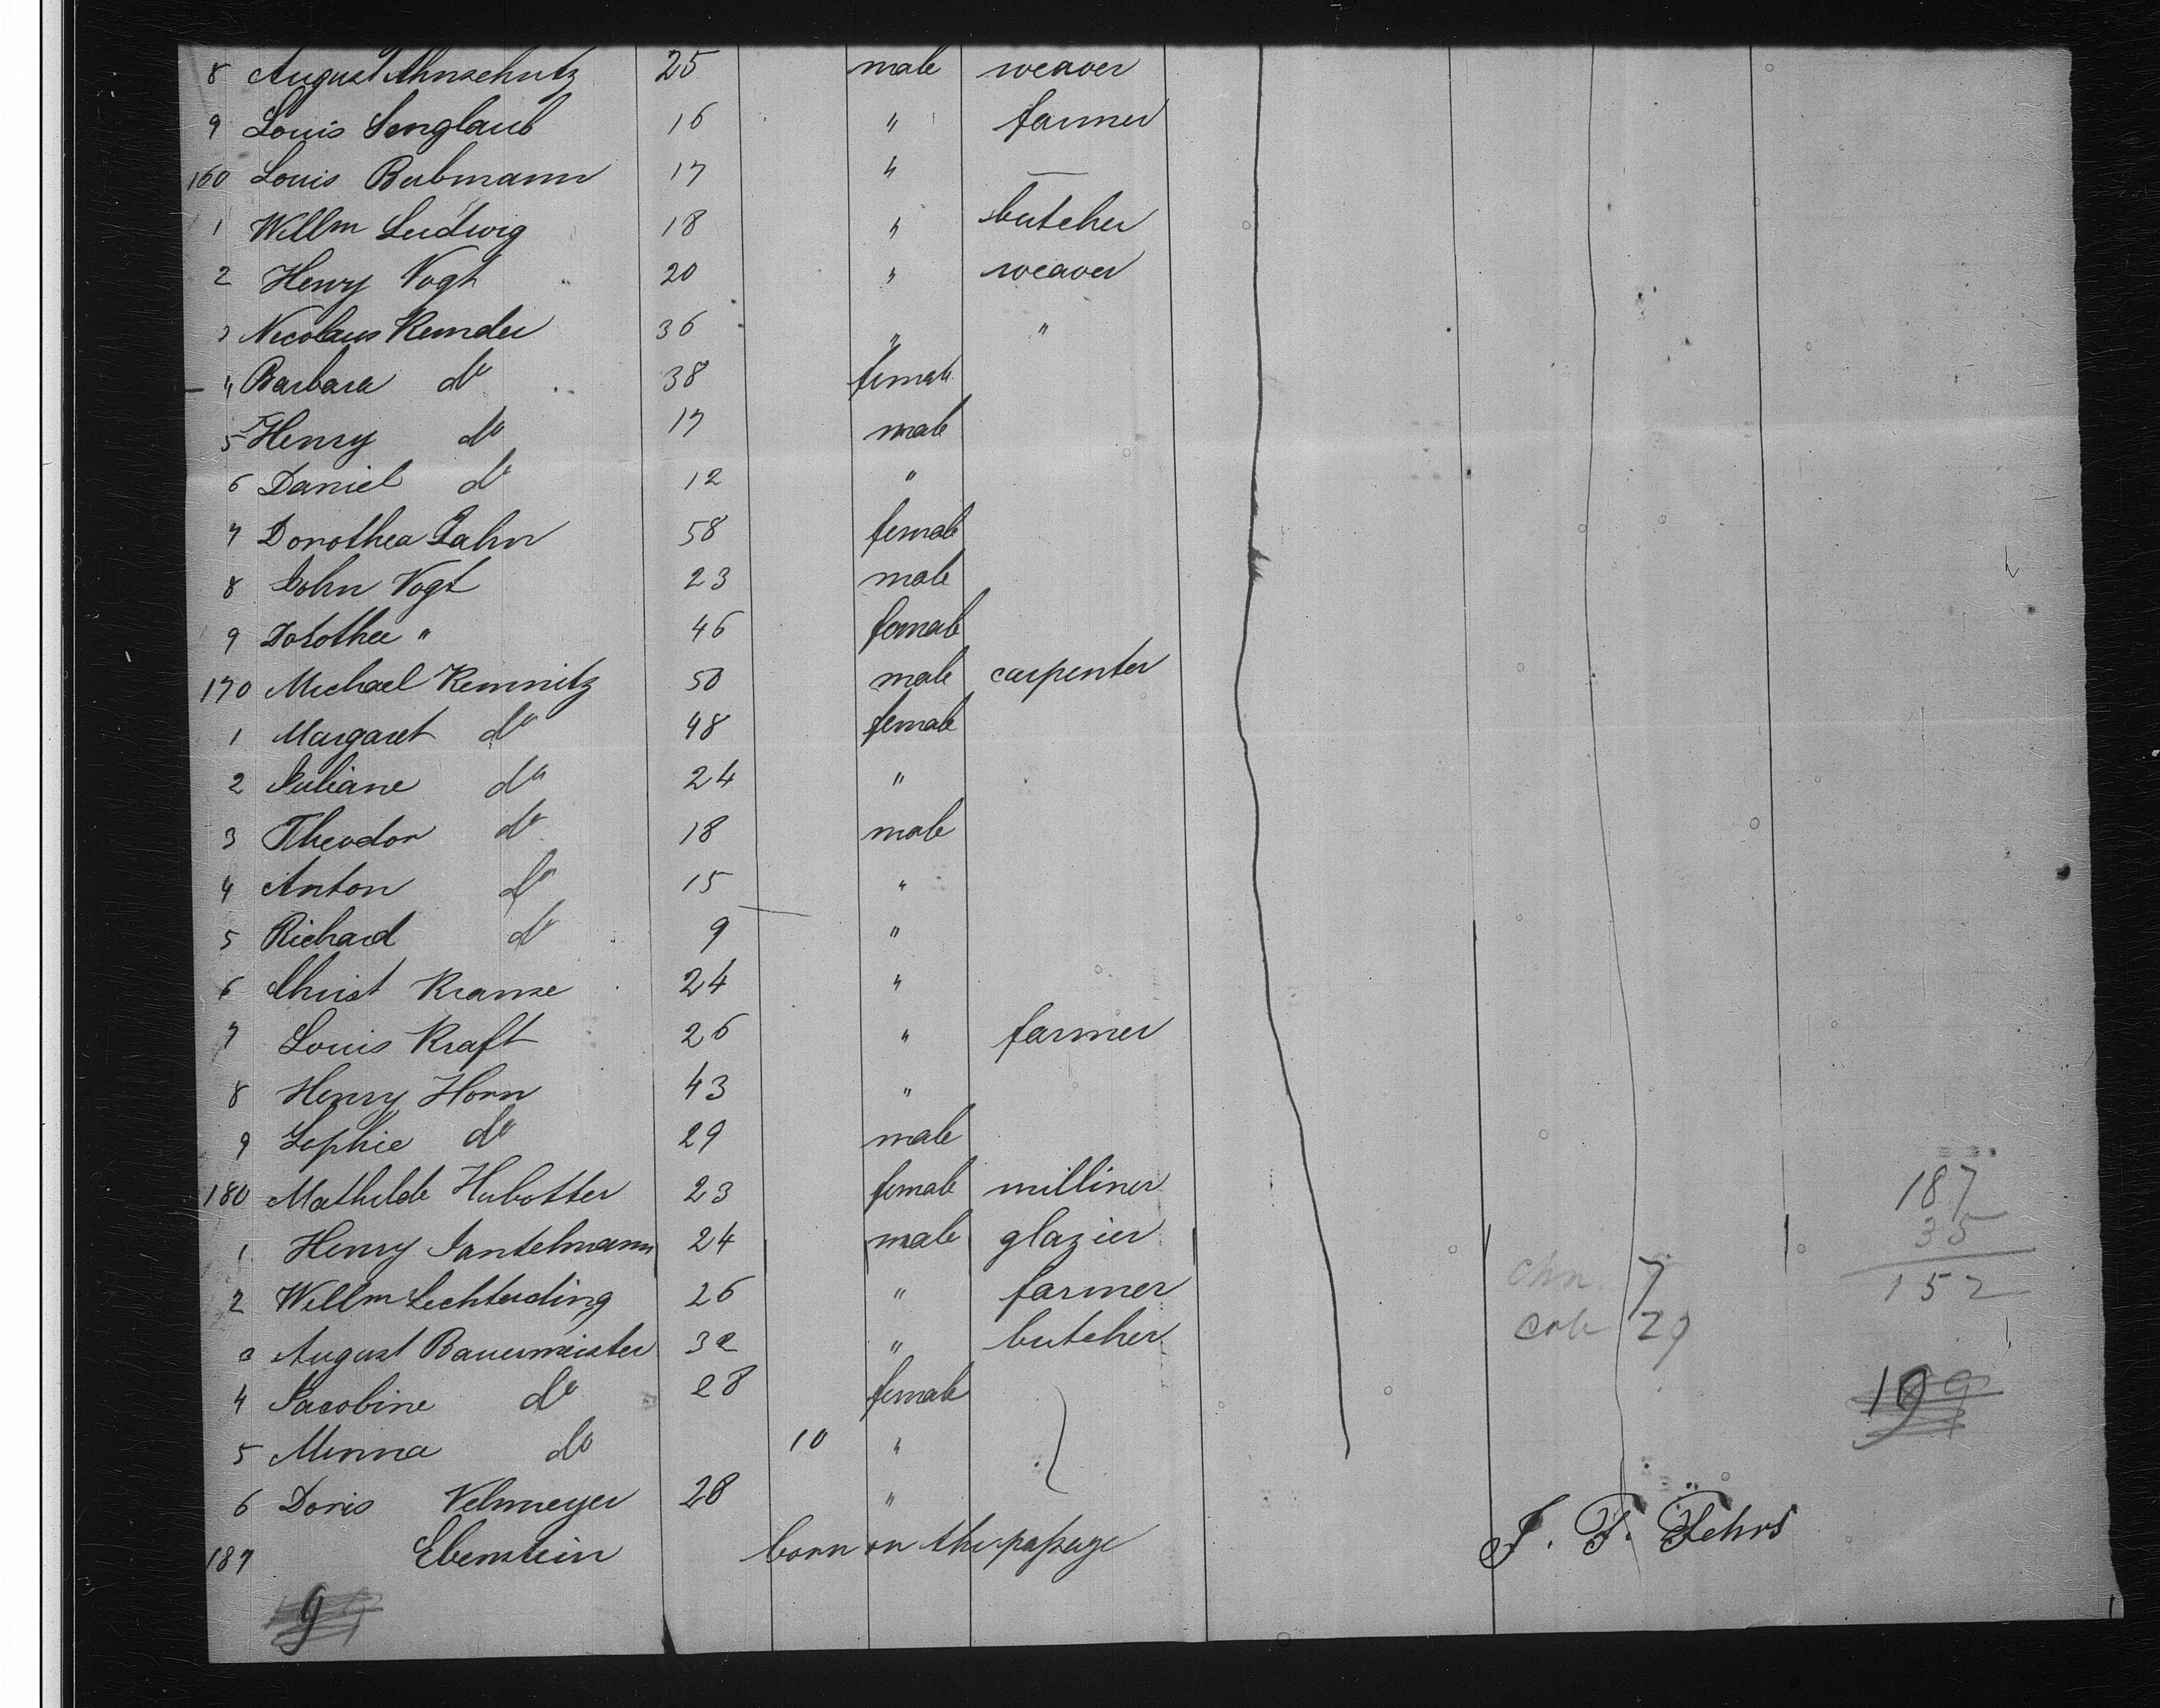 8 August Ahnschutz 25 male weaver
9 Louis Senglaub 16 " farmer
160 Louis Bubmann 17 " —
1 Willm Ludwig 18 " butcher
2 Henry Vogt 20 " weaver
3 Nicolaus Remder 36 " "
4 Barbara do 38 female
5 Henry do 17 male
6 Daniel do 12 "
7 Dorothea Jahn 58 female
8 John Vogt 23 male
9 Dorothee " 46 female
170 Michael Kemnitz 50 male carpenter
1 Margaret do 48 female
2 Juliane do 24 "
3 Theodor do 18 male
4 Anton do 15 "
5 Richard do 9 "
6 Christ Krause 24 "
7 Louis Kraft 26 " farmer
8 Henry Horn 43 "
9 Sophie do 29 male
180 Mathilde Hubotter 23 female milliner
187
1 Henry Jantelmann 24 male glazier
35
2 Willm Lechterding 26 " farmer
7 152
3 August Bauermeister 32 " butcher
29
4 Jacobine do 28 female
5 Minna do 10 "
6 Doris Vehmeyer 28 "
187 Ebenstein born on the passage
J. F. Fehrs
9